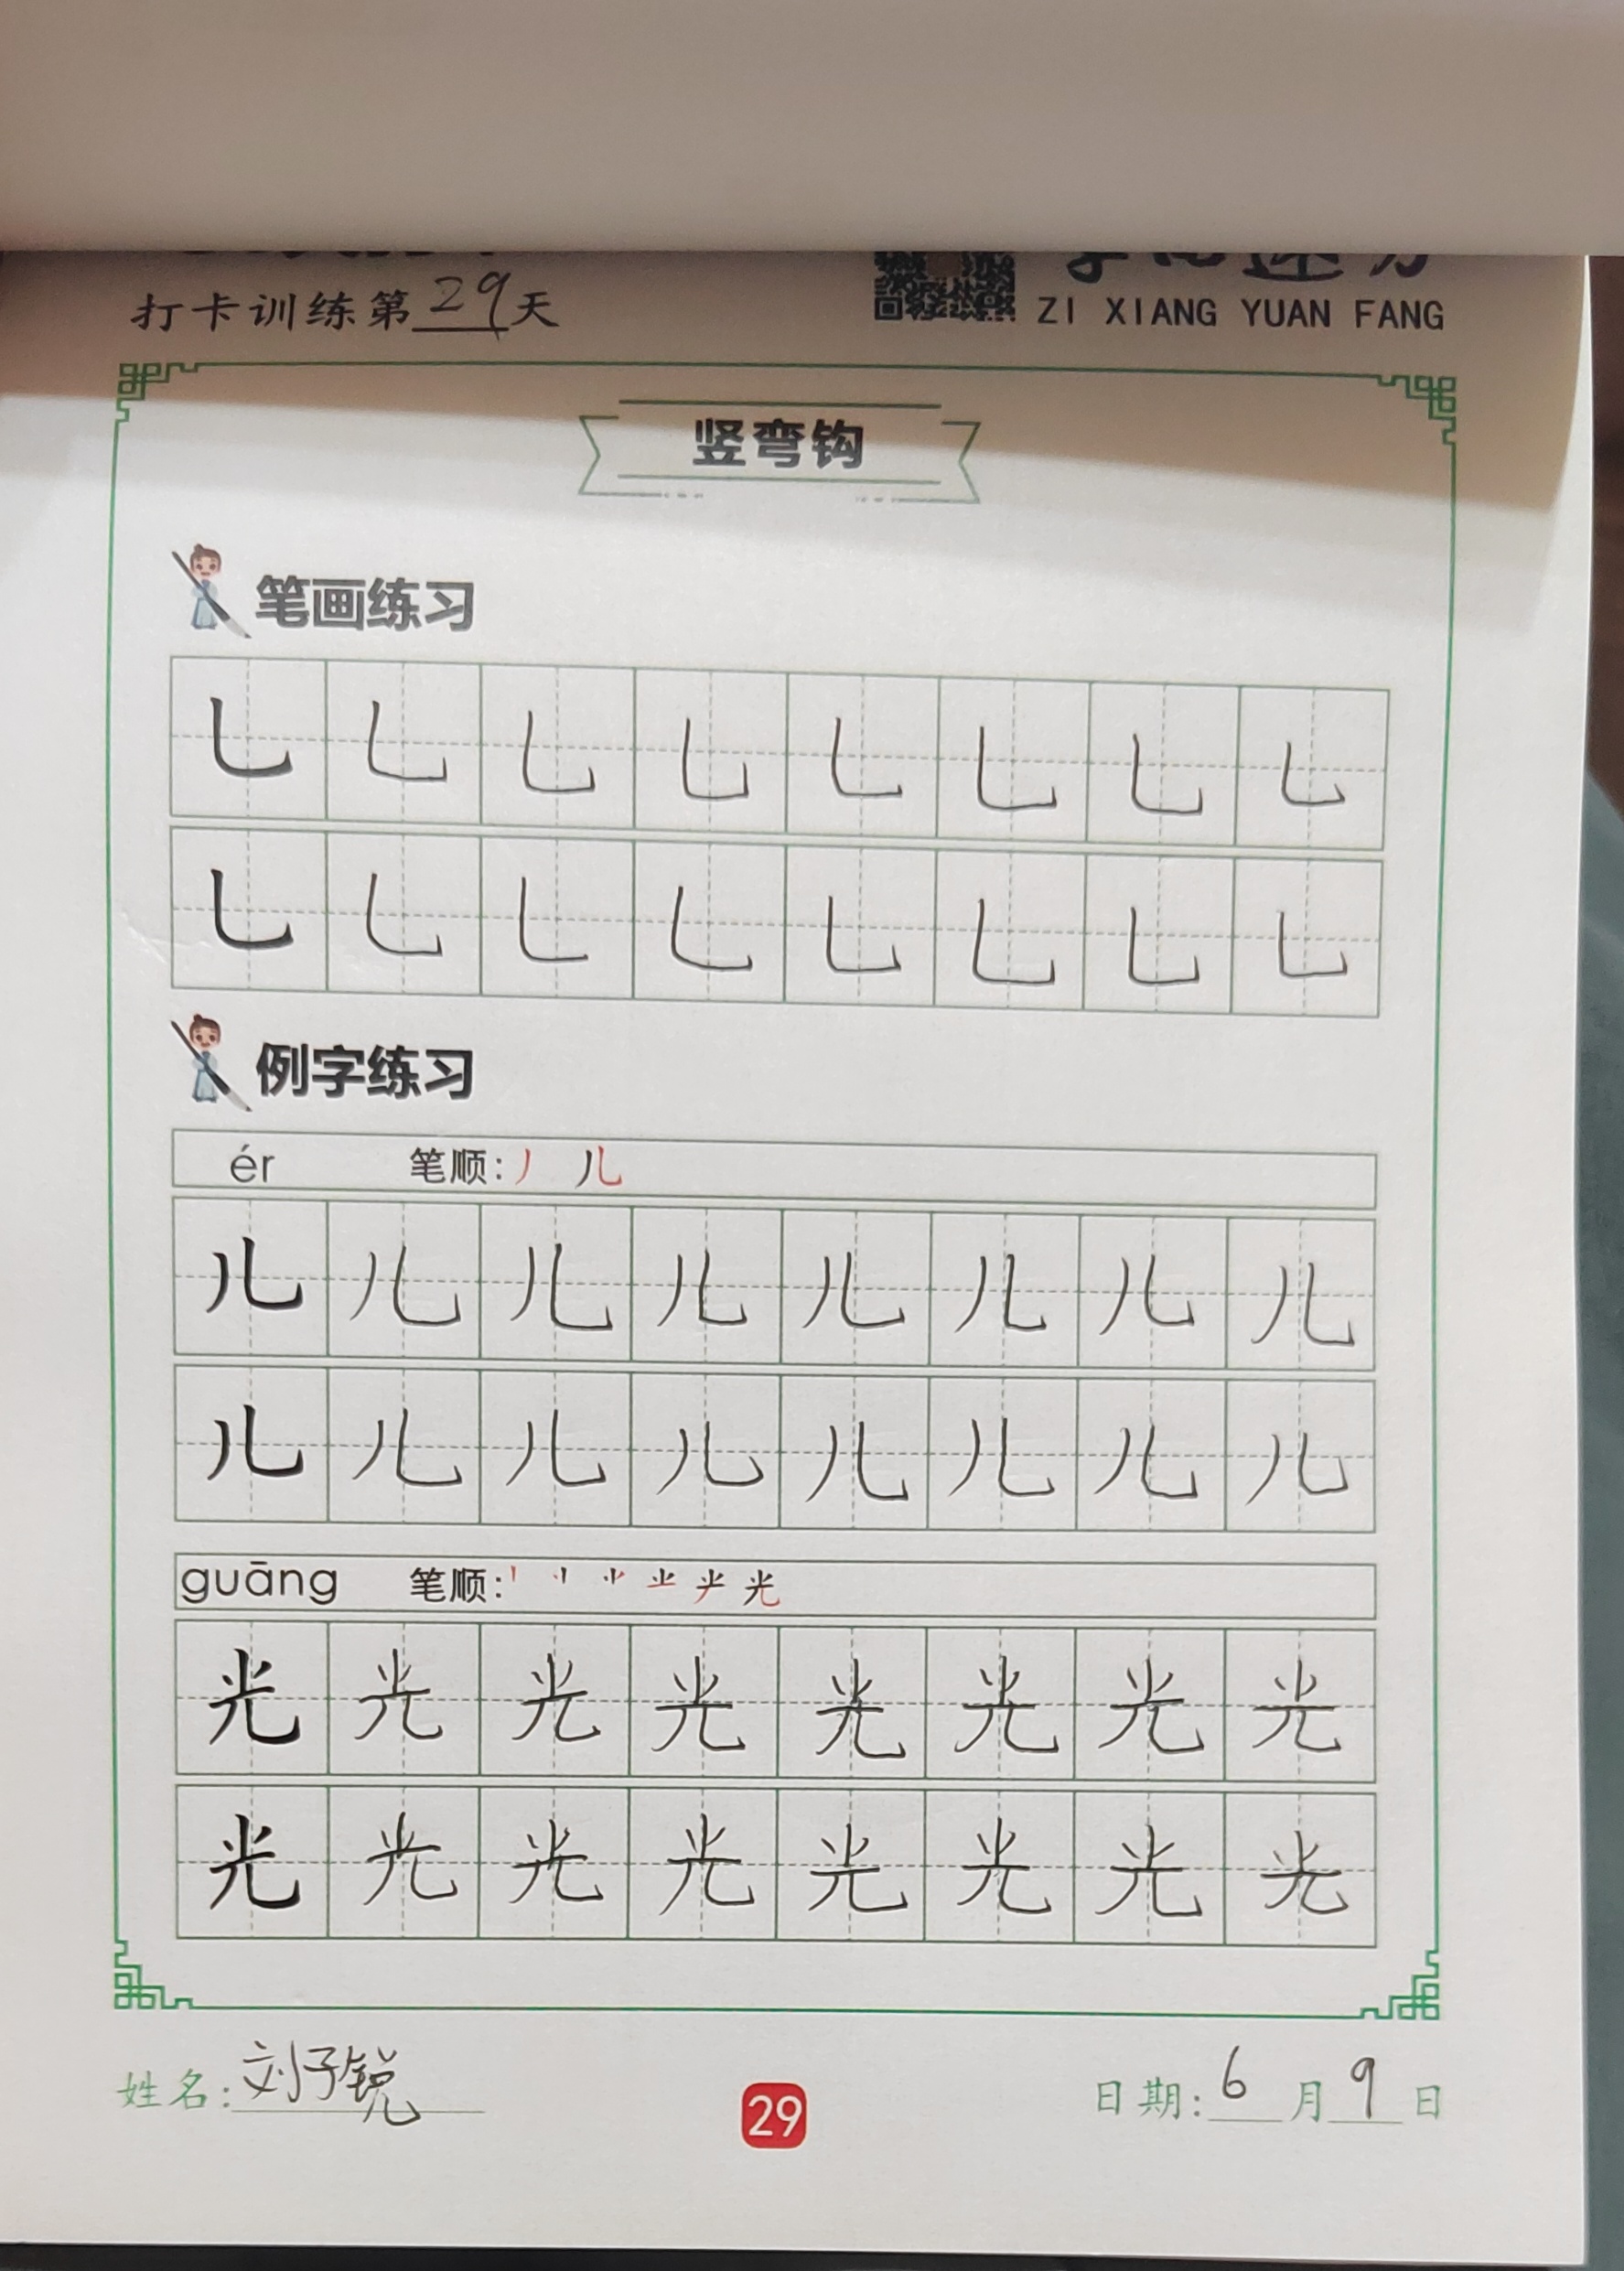 打卡训练第29天
ZI XIANG YUAN FANG
竖弯钩
笔画练习
乚 乚 乚 乚 乚 乚 乚 乚
乚 乚 乚 乚 乚 乚 乚 乚
例字练习
ér 笔顺: 丿 儿
儿 儿 儿 儿 儿 儿 儿 儿
儿 儿 儿 儿 儿 儿 儿 儿
guāng 笔顺:
光 光 光 光 光 光 光 光
光 光 光 光 光 光 光 光
姓名: 刘子锐
29
日期: 6月9日